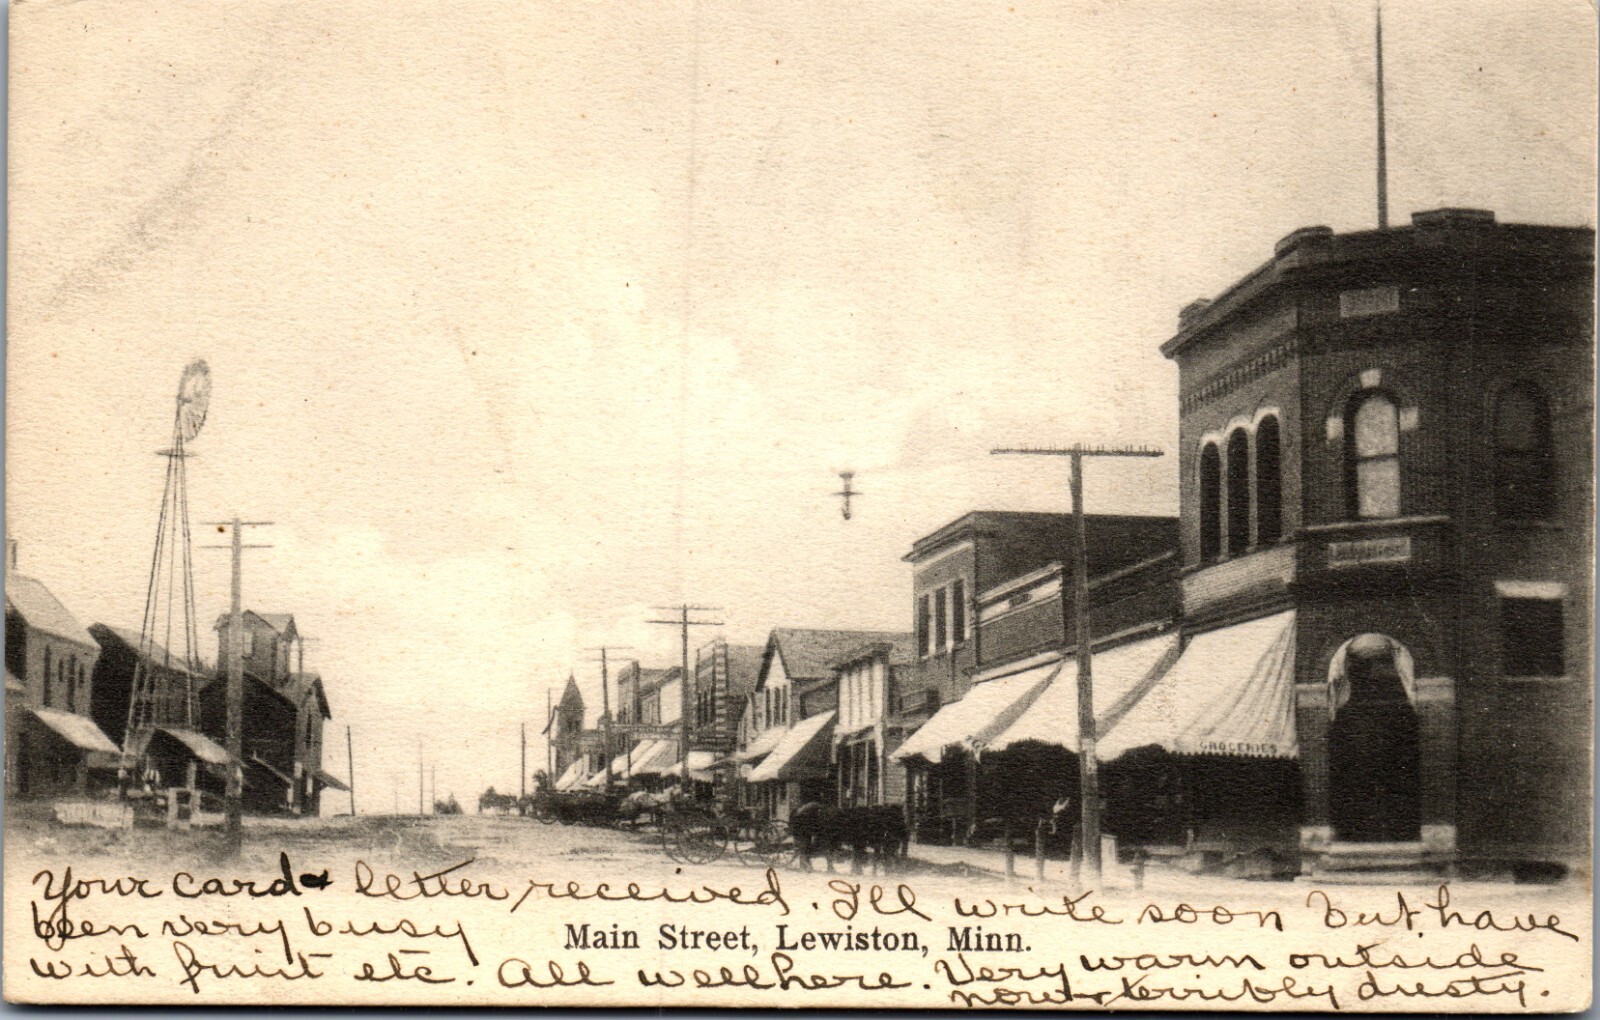 GROCERIES
Your card & letter received. I'll write soon but have
been very busy
Main Street, Lewiston, Minn.
with fruit etc. All well here. Very warm outside
now & terribly dusty.